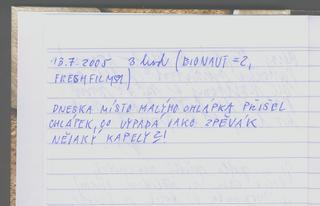 13.7.2005 3 hod (BIONAUT = 2,
FRESHFILM)
DNESKA MÍSTO MALÝHO CHLÁPKA PŘIŠEL
CHLÁPEK, CO VYPADÁ JAKO ZPĚVÁK
NĚJAKÝ KAPELY !